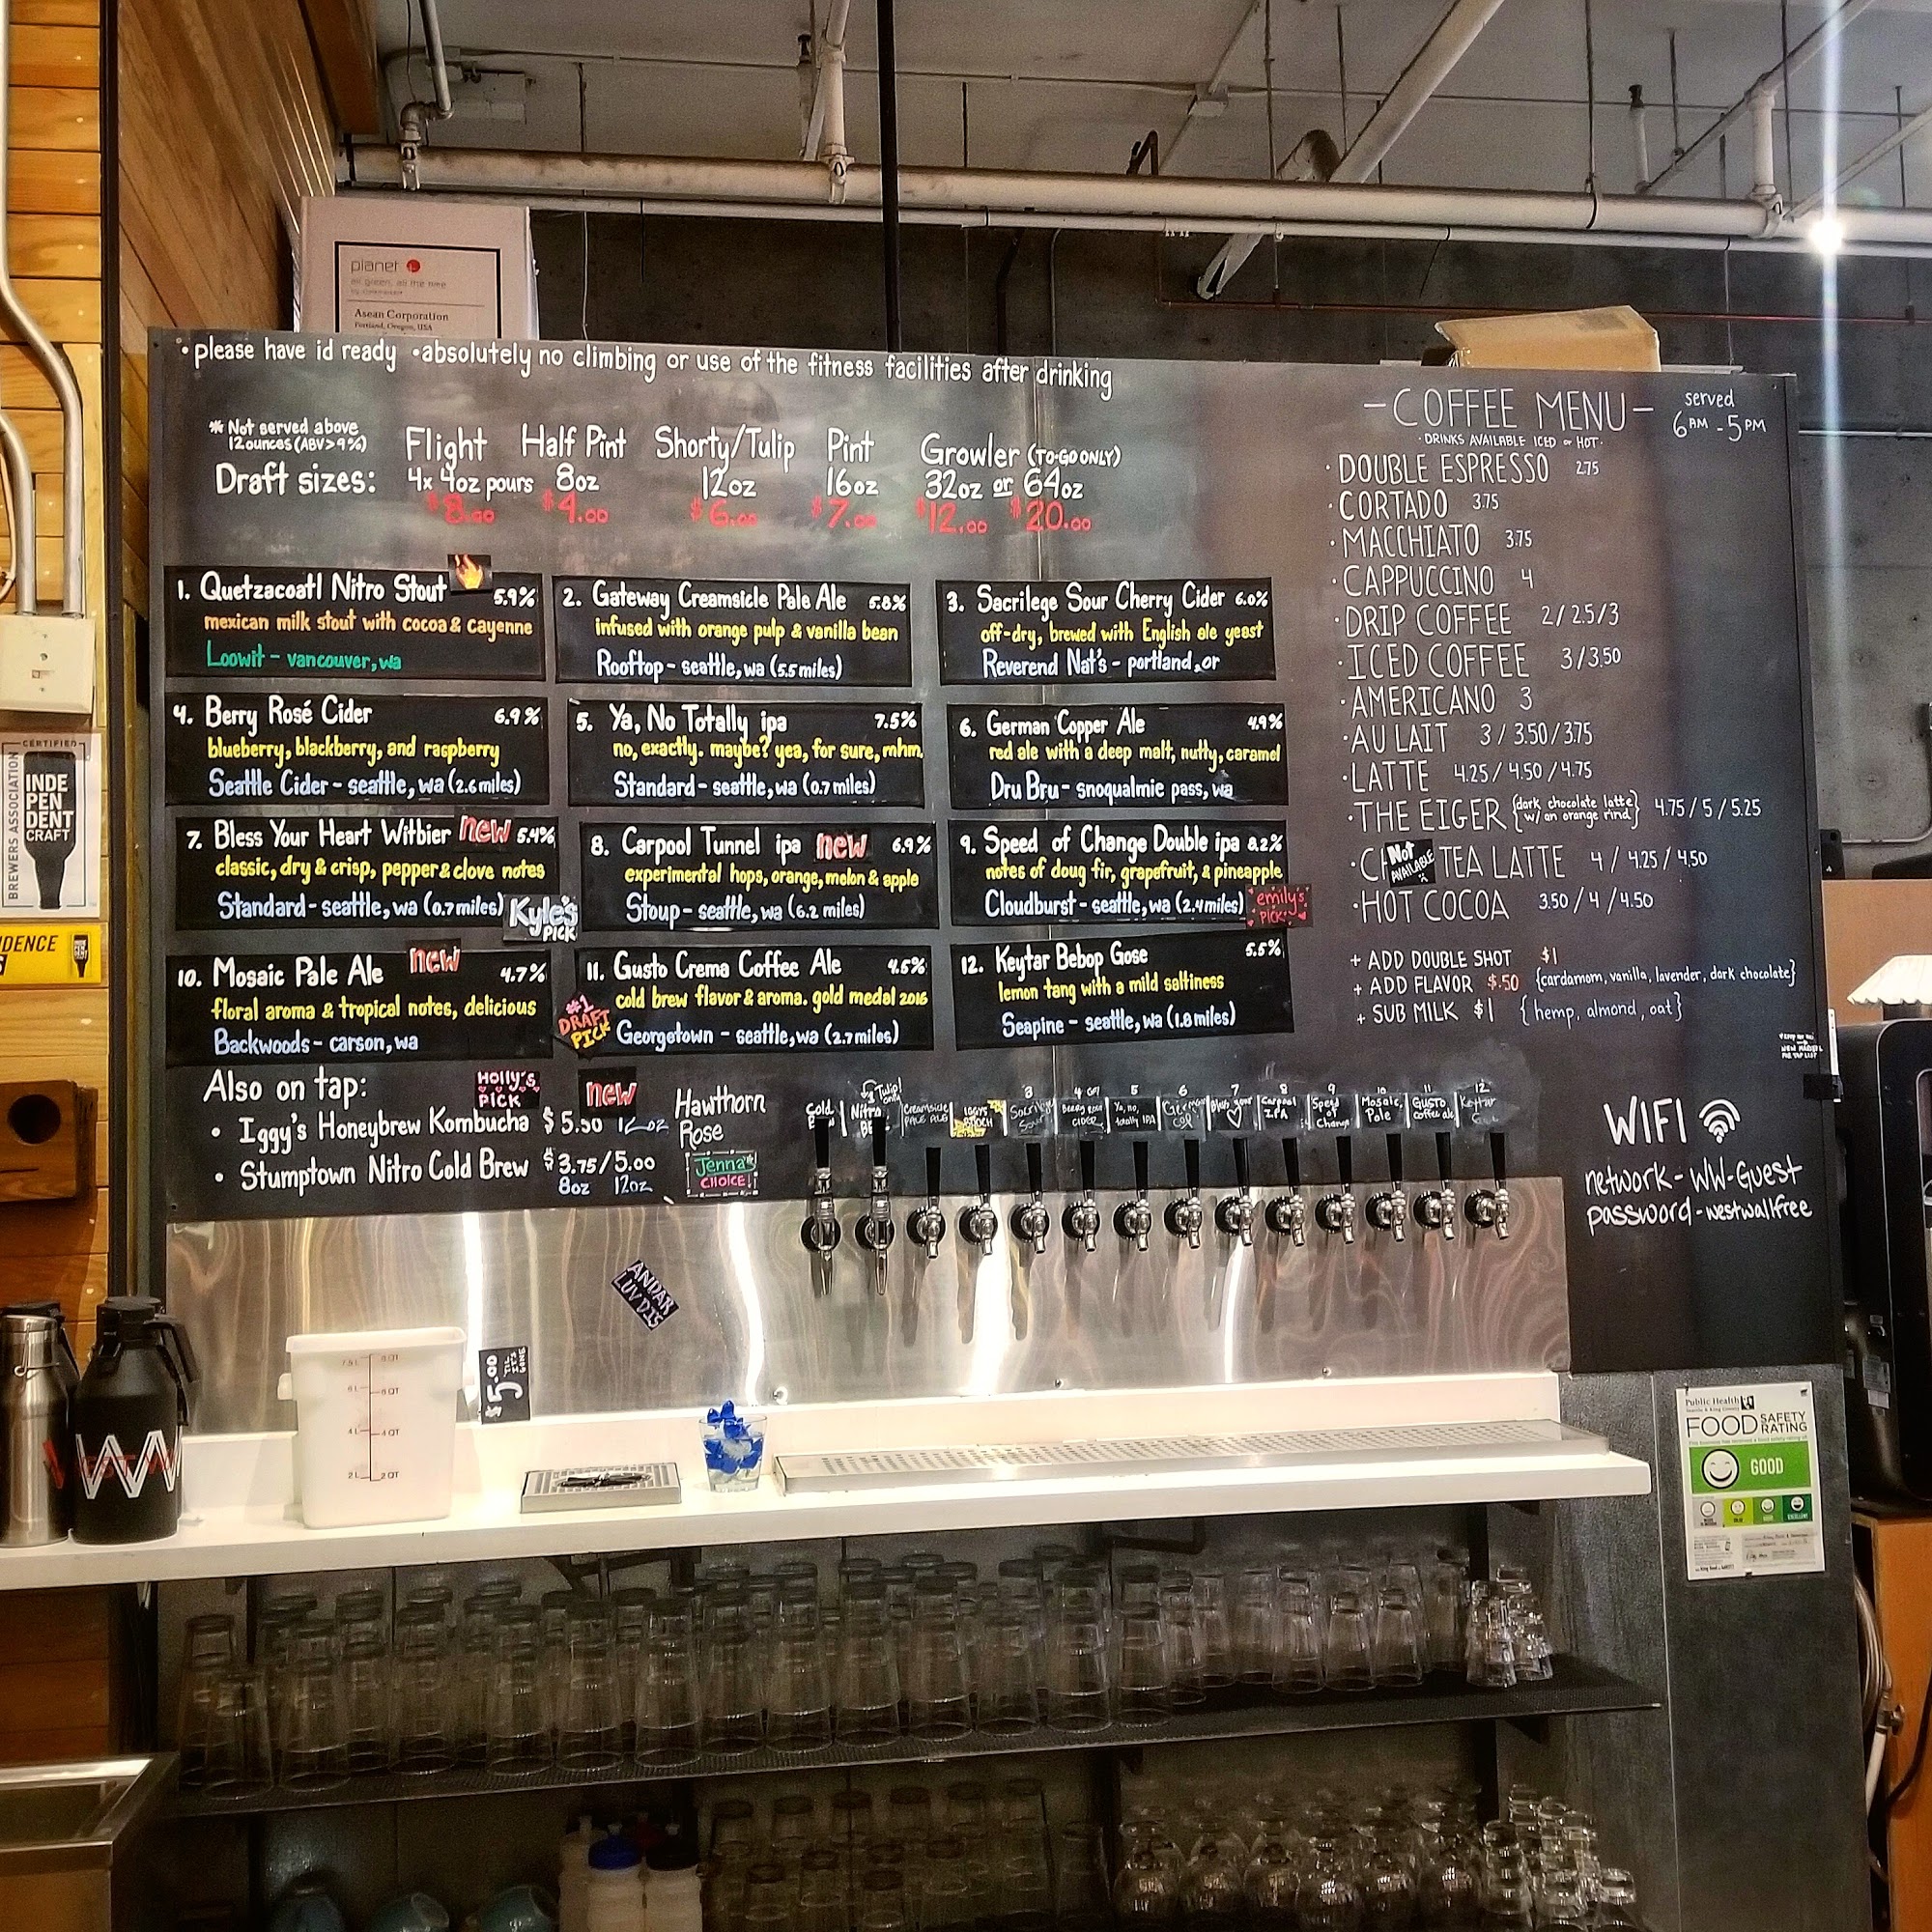 planet
all green, all the time
Asean Corporation
Portland, Oregon, USA
• please have id ready • absolutely no climbing or use of the fitness facilities after drinking
* Not served above
12 ounces (ABV > 9%)
Draft sizes:
Flight
4x 4oz pours
$8.00
Half Pint
8oz
$4.00
Shorty/Tulip
12oz
$6.00
Pint
16oz
$7.00
Growler (TO-GO ONLY)
32oz or 64oz
$12.00 $20.00
1. Quetzacoatl Nitro Stout 5.9%
mexican milk stout with cocoa & cayenne
Loowit - vancouver, wa
2. Gateway Creamsicle Pale Ale 5.8%
infused with orange pulp & vanilla bean
Rooftop - seattle, wa (5.5 miles)
3. Sacrilege Sour Cherry Cider 6.0%
off-dry, brewed with English ale yeast
Reverend Nat's - portland, or
4. Berry Rosé Cider 6.9%
blueberry, blackberry, and raspberry
Seattle Cider - seattle, wa (2.6 miles)
5. Ya, No Totally ipa 7.5%
no, exactly. maybe? yea, for sure, mhm.
Standard - seattle, wa (0.7 miles)
6. German Copper Ale 4.9%
red ale with a deep malt, nutty, caramel
Dru Bru - snoqualmie pass, wa
7. Bless Your Heart Witbier new 5.4%
classic, dry & crisp, pepper & clove notes
Standard - seattle, wa (0.7 miles)
Kyle's
PICK
8. Carpool Tunnel ipa new 6.9%
experimental hops, orange, melon & apple
Stoup - seattle, wa (6.2 miles)
9. Speed of Change Double ipa 8.2%
notes of doug fir, grapefruit, & pineapple
Cloudburst - seattle, wa (2.4 miles)
emily's
PICK!
10. Mosaic Pale Ale new 4.7%
floral aroma & tropical notes, delicious
Backwoods - carson, wa
11. Gusto Crema Coffee Ale 4.5%
cold brew flavor & aroma. gold medal 2016
Georgetown - seattle, wa (2.7 miles)
#1
DRAFT
PICK
12. Keytar Bebop Gose 5.5%
lemon tang with a mild saltiness
Seapine - seattle, wa (1.8 miles)
Also on tap:
HOLLY'S
PICK
new
• Iggy's Honeybrew Kombucha $5.50 12oz
Hawthorn
Rose
• Stumptown Nitro Cold Brew $3.75/5.00
8oz 12oz
Jenna's
CHOICE!
Tulip
only
Cold
Nitro
Creamsicle
PALE ALE
3
4
CIDER
5
Ya, no,
totally IPA
6
7
Bless your
8
Carpool
IPA
9
Speed
of
Change
10
Mosaic
Pale
11
GUSTO
coffee ale
12
Keytar
- COFFEE MENU -
served
6AM - 5PM
· DRINKS AVAILABLE ICED or HOT ·
· DOUBLE ESPRESSO 2.75
· CORTADO 3.75
· MACCHIATO 3.75
· CAPPUCCINO 4
· DRIP COFFEE 2/2.5/3
· ICED COFFEE 3/3.50
· AMERICANO 3
· AU LAIT 3/3.50/3.75
· LATTE 4.25/4.50/4.75
· THE EIGER {dark chocolate latte w/ an orange rind} 4.75/5/5.25
· C TEA LATTE 4/4.25/4.50
Not
AVAILABLE
· HOT COCOA 3.50/4/4.50
+ ADD DOUBLE SHOT $1
+ ADD FLAVOR $.50 {cardamom, vanilla, lavender, dark chocolate}
+ SUB MILK $1 {hemp, almond, oat}
WIFI
network - WW-Guest
password - westwallfree
CERTIFIED
INDE
PEN
DENT
CRAFT
BREWERS ASSOCIATION
DENCE
ANDAR
LUV DIS
$5.00
TIL
IT'S
GONE
8 QT
6L 6 QT
4L 4 QT
2L 2 QT
W
Public Health
Seattle & King County
FOOD SAFETY
RATING
GOOD